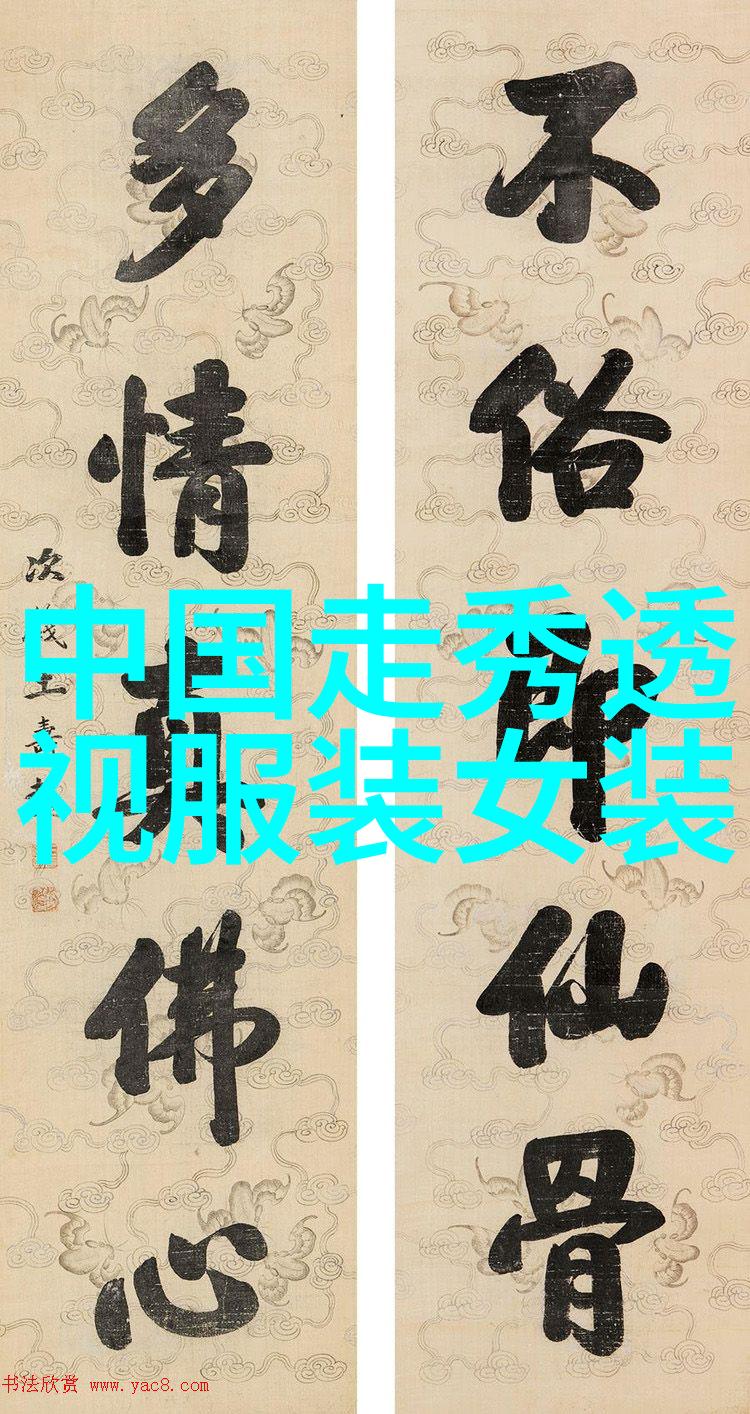 不俗即仙骨
多情真佛心
次 王壽
中国走秀透
视服装女装
书法欣赏 www.yac8.com